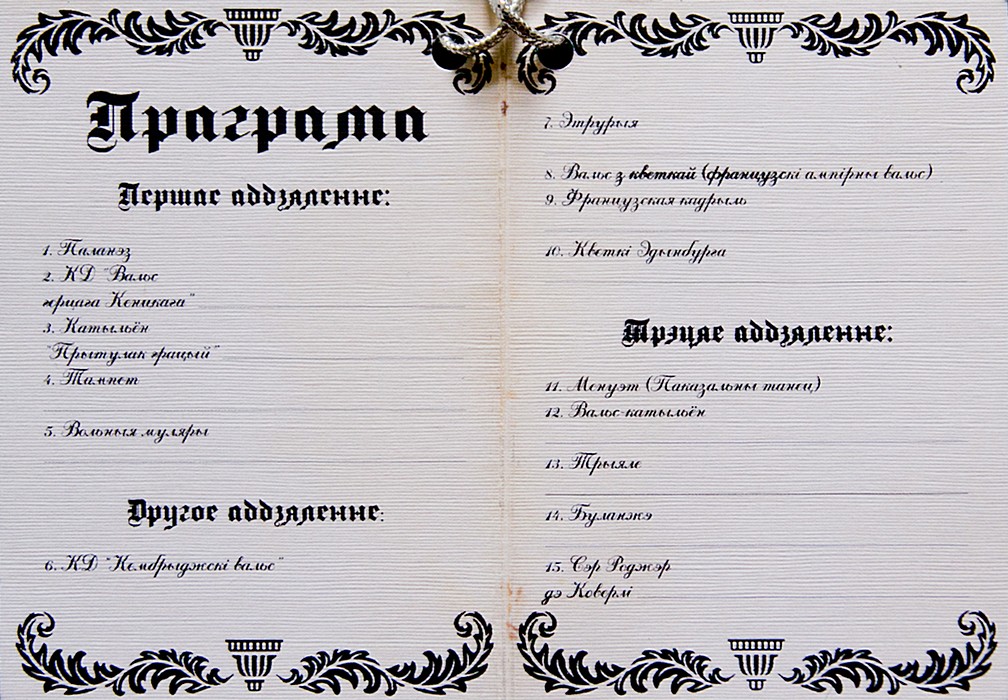 Праграма
Першае аддзяленне:
1. Паланэз
2. КД "Вальс
герцага Кенцкага"
3. Катыльён
"Прытулак грацый"
4. Тампет
5. Вольныя муляры
Другое аддзяленне:
6. КД "Кембрыджскі вальс"
7. Этрурыя
8. Вальс з кветкай (французскі ампірны вальс)
9. Французская кадрыль
10. Кветкі Эдынбурга
Трэцяе аддзяленне:
11. Менуэт (Паказальны танец)
12. Вальс-катыльён
13. Трыяле
14. Буланжэ
15. Сэр Роджэр
дэ Коверлі